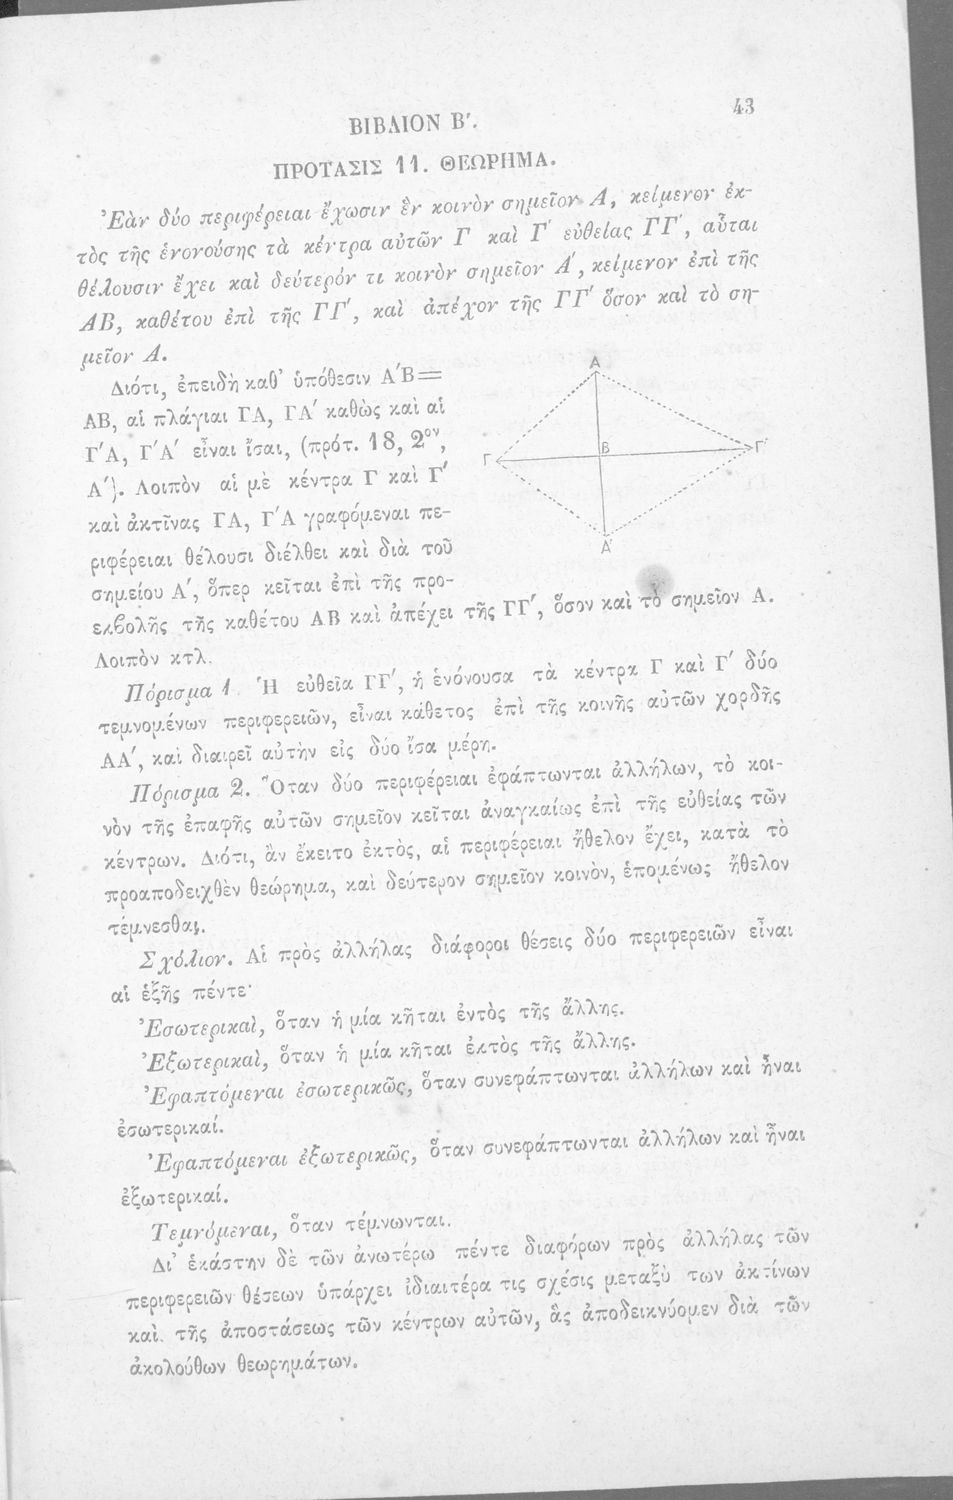 43
ΒΙΒΛΙΟΝ Β'.
ΠΡΟΤΑΣΙΣ 11. ΘΕΩΡΗΜΑ.
Ἐὰν δύο περιφέρειαι ἔχωσιν ἓν κοινὸν σημεῖον Α, κείμενον ἐκ-
τὸς τῆς ἑνονούσης τὰ κέντρα αὐτῶν Γ καὶ Γ' εὐθείας ΓΓ', αὗται
θέλουσιν ἔχει καὶ δεύτερόν τι κοινὸν σημεῖον Α', κείμενον ἐπὶ τῆς
ΑΒ, καθέτου ἐπὶ τῆς ΓΓ', καὶ ἀπέχον τῆς ΓΓ' ὅσον καὶ τὸ ση-
μεῖον Α.
Διότι, ἐπειδὴ καθ' ὑπόθεσιν Α'Β=
ΑΒ, αἱ πλάγιαι ΓΑ, ΓΑ' καθὼς καὶ αἱ
Γ'Α, Γ'Α' εἶναι ἴσαι, (πρότ. 18, 2ον,
Α'). Λοιπὸν αἱ μὲ κέντρα Γ καὶ Γ'
καὶ ἀκτῖνας ΓΑ, Γ'Α γραφόμεναι πε-
ριφέρειαι θέλουσι διέλθει καὶ διὰ τοῦ
σημείου Α', ὅπερ κεῖται ἐπὶ τῆς προ-
εκβολῆς τῆς καθέτου ΑΒ καὶ ἀπέχει τῆς ΓΓ', ὅσον καὶ τὸ σημεῖον Α.
Λοιπὸν κτλ.
Α
Γ
Β
Γ'
Α'
Πόρισμα 1. Ἡ εὐθεῖα ΓΓ', ἡ ἑνόνουσα τὰ κέντρα Γ καὶ Γ' δύο
τεμνομένων περιφερειῶν, εἶναι κάθετος ἐπὶ τῆς κοινῆς αὐτῶν χορδῆς
ΑΑ', καὶ διαιρεῖ αὐτὴν εἰς δύο ἴσα μέρη.
Πόρισμα 2. Ὅταν δύο περιφέρειαι ἐφάπτωνται ἀλλήλων, τὸ κοι-
νὸν τῆς ἐπαφῆς αὐτῶν σημεῖον κεῖται ἀναγκαίως ἐπὶ τῆς εὐθείας τῶν
κέντρων. Διότι, ἂν ἔκειτο ἐκτὸς, αἱ περιφέρειαι ἤθελον ἔχει, κατὰ τὸ
προαποδειχθὲν θεώρημα, καὶ δεύτερον σημεῖον κοινὸν, ἑπομένως ἤθελον
τέμνεσθαι.
Σχόλιον. Αἱ πρὸς ἀλλήλας διάφοροι θέσεις δύο περιφερειῶν εἶναι
αἱ ἑξῆς πέντε·
Ἐσωτερικαὶ, ὅταν ἡ μία κῆται ἐντὸς τῆς ἄλλης.
Ἐξωτερικαὶ, ὅταν ἡ μία κῆται ἐκτὸς τῆς ἄλλης.
Ἐφαπτόμεναι ἐσωτερικῶς, ὅταν συνεφάπτωνται ἀλλήλων καὶ ἦναι
ἐσωτερικαί.
Ἐφαπτόμεναι ἐξωτερικῶς, ὅταν συνεφάπτωνται ἀλλήλων καὶ ἦναι
ἐξωτερικαί.
Τεμνόμεναι, ὅταν τέμνωνται.
Δι' ἑκάστην δὲ τῶν ἀνωτέρω πέντε διαφόρων πρὸς ἀλλήλας τῶν
περιφερειῶν θέσεων ὑπάρχει ἰδιαιτέρα τις σχέσις μεταξὺ των ἀκτίνων
καὶ τῆς ἀποστάσεως τῶν κέντρων αὐτῶν, ἃς ἀποδεικνύομεν διὰ τῶν
ἀκολούθων θεωρημάτων.